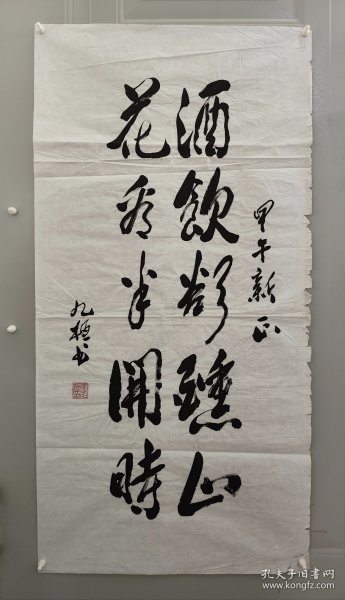 甲午新正
酒飲微醺正
花看半開時
九書
孔夫子旧书网